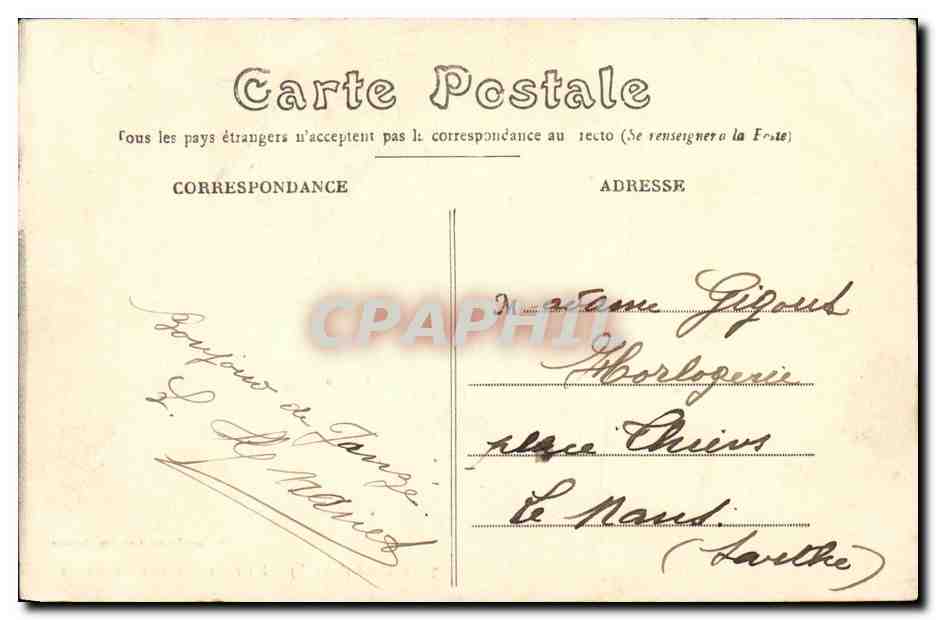 Carte Postale
Tous les pays étrangers n'acceptent pas la correspondance au recto (Se renseigner à la Poste)
CORRESPONDANCE
ADRESSE
Bonjour de
L.
Madame Gigout
Horlogerie
place Thiers
Le Mans.
(Sarthe)
CPAPHIL